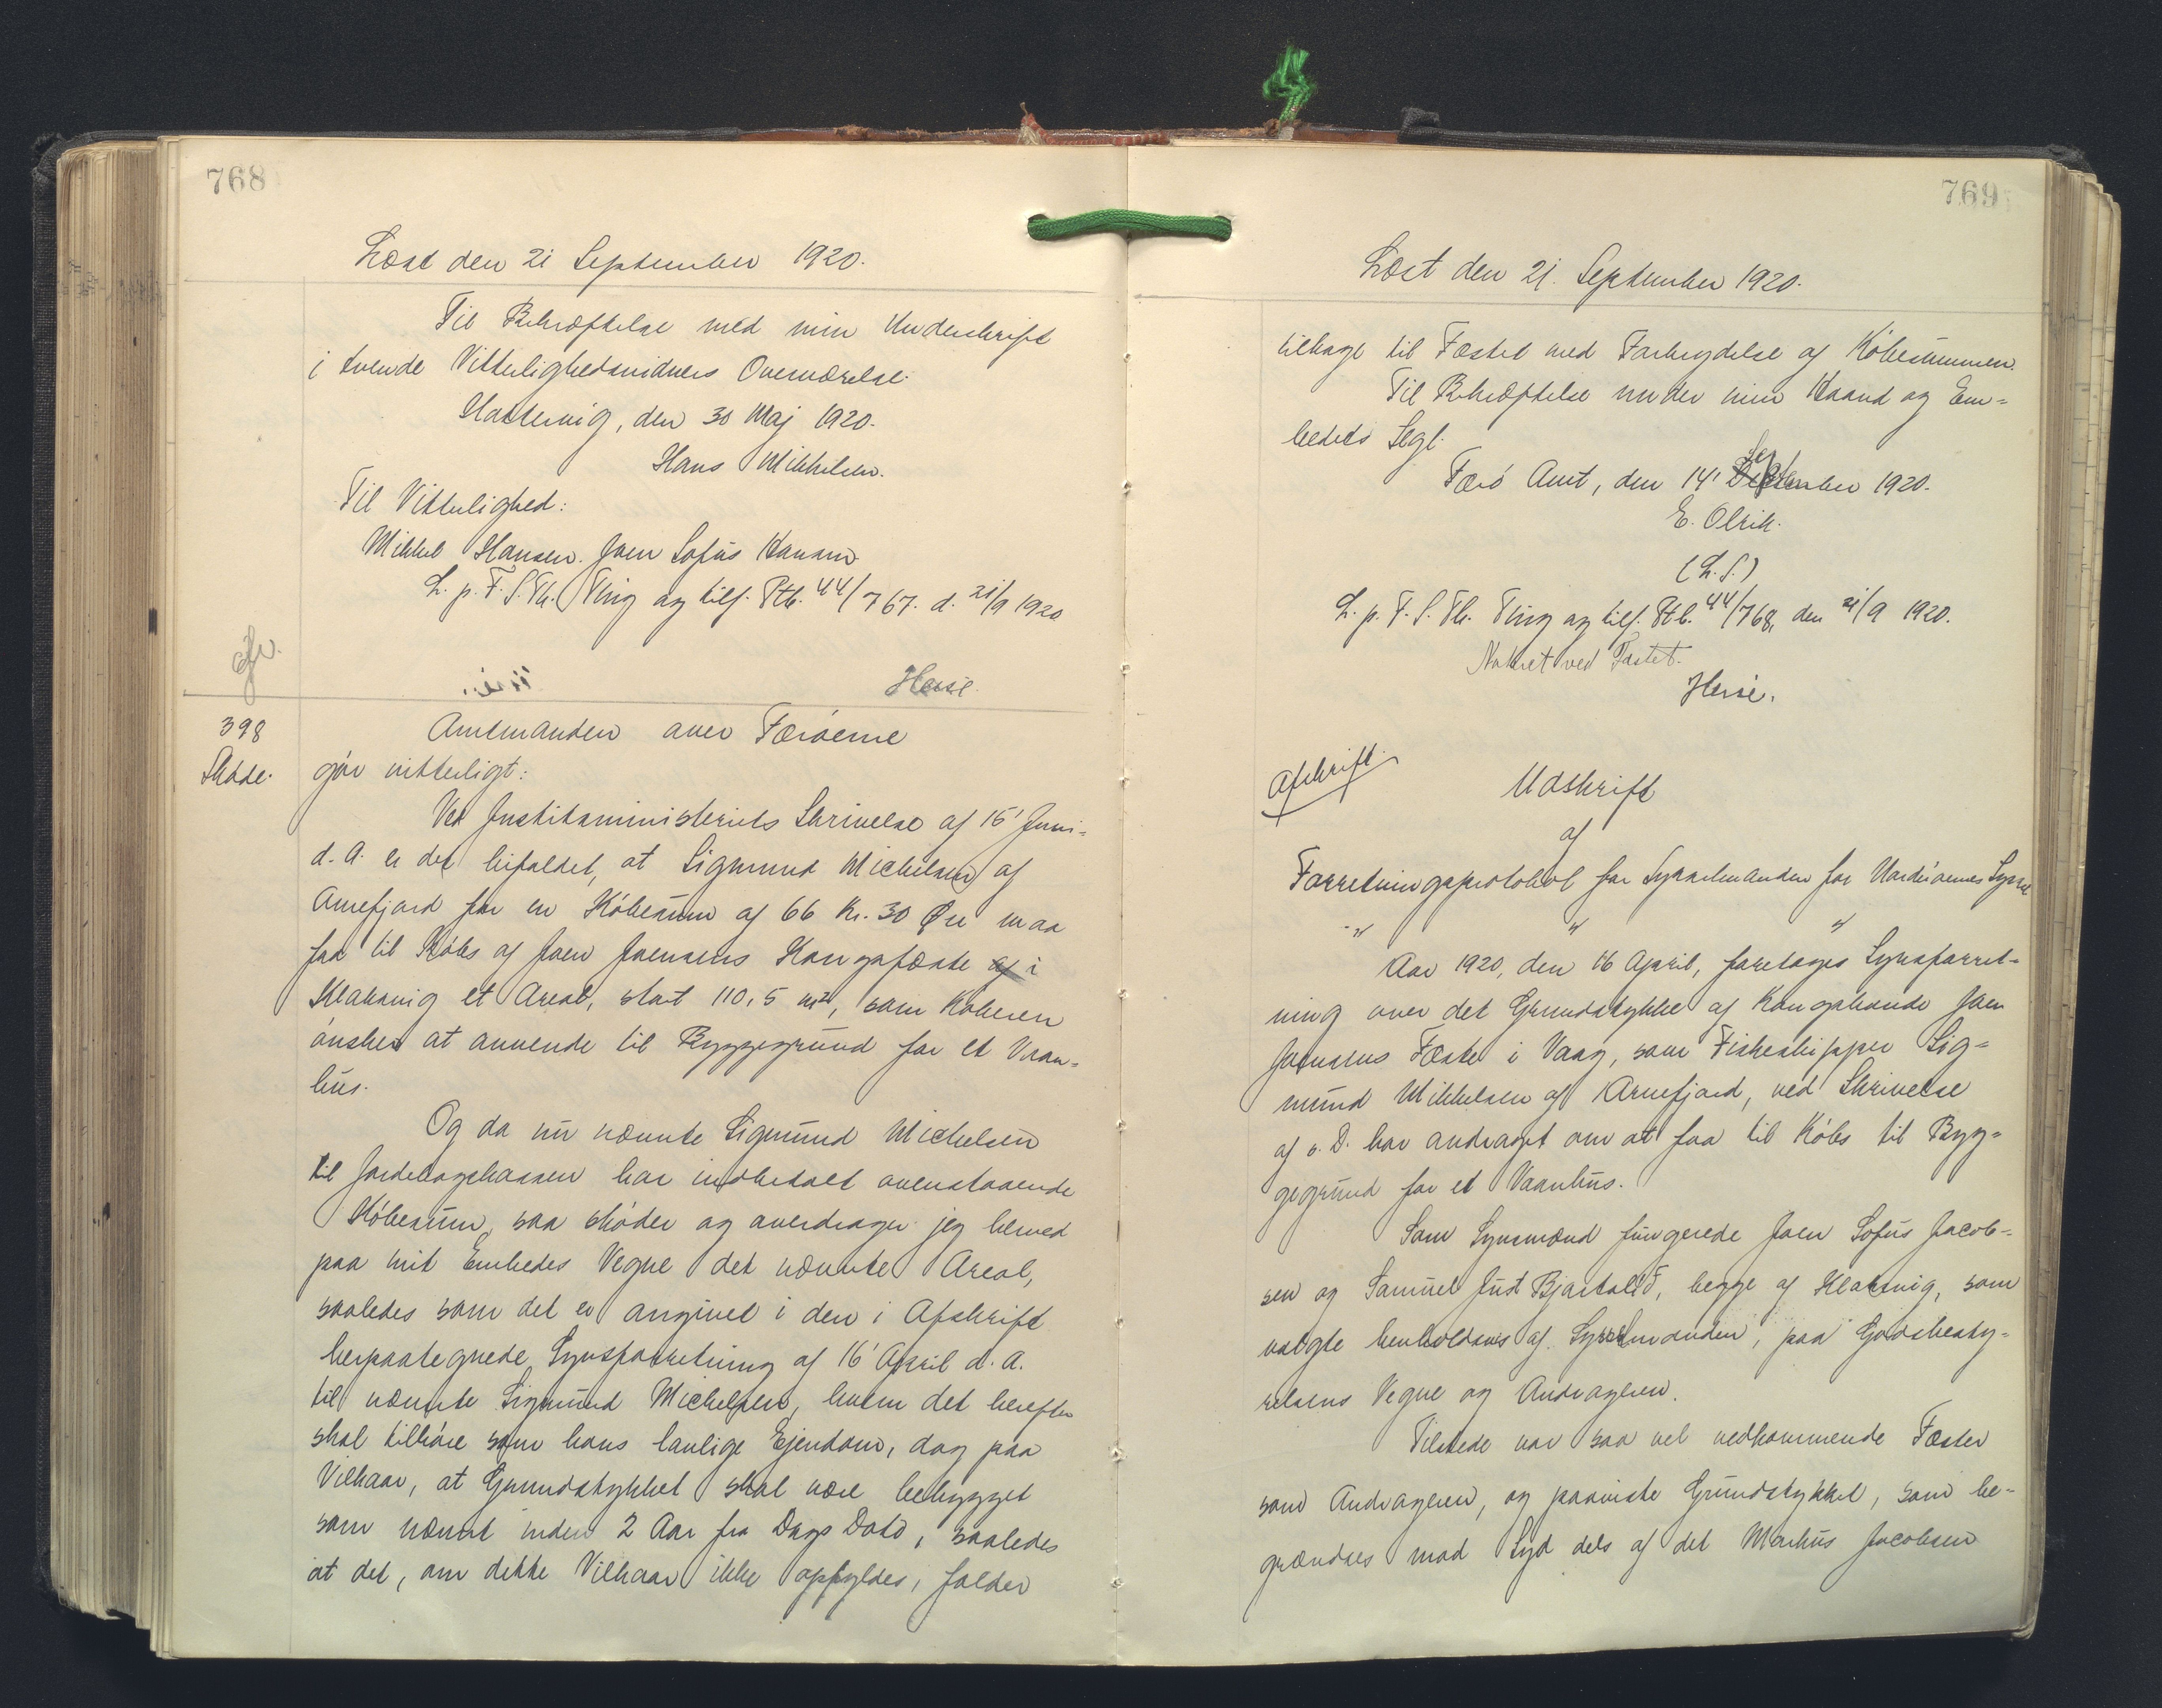 768
Læst den 21 September 1920.
Til Bekræftelse med min Underskrift
i tvende Vitterlighedsvidners Overværelse.
Hattervig, den 30 Maj 1920.
Hans Mikkelsen.
Til Vitterlighed:
Mikkel Hansen. Joen Sofus Hansen.
L. p. F. S. Th. Ting og tilf. Ptb. 44/767. d. 21/9 1920
Heise
398
Skøde.
Amtmanden over Færøerne
gør vitterligt:
Ved Justitsministeriets Skrivelse af 15' Juni
d. A. er det bifaldet, at Sigmund Michelsen af
Arnefjord for en Købesum af 66 Kr. 30 Øre maa
faa til Købs af Joen Joensens Kongsfæste af i
Klaksvig et Areal, stort 110,5 m², som Køberen
ønsker at anvende til Byggegrund for et Vaan-
hus.
Og da nu nævnte Sigmund Michelsen
til Jordebogskassen har indbetalt ovenstaaende
Købesum, saa skøder og overdrager jeg herved
paa mit Embedes Vegne det nævnte Areal,
saaledes som det er angivet i den i Afskrift
herpaategnede Synsforretning af 16' April d. A.
til nævnte Sigmund Michelsen, hvem det herefter
skal tilhøre som hans lovlige Ejendom, dog paa
Vilkaar, at Grundstykket skal være bebygget
som nævnt inden 2 Aar fra Dags Dato, saaledes
at det, om dette Vilkaar ikke opfyldes, falder
769
Læst den 21. September 1920.
tilbage til Fæstet med Fortrydelse af Købesummen.
Til Bekræftelse under min Haand og Em-
bedets Segl.
Færø Amt, den 14' September 1920.
E. Olrik.
(L.S.)
L. p. F. S. Th. Ting og tilf. Ptb. 44/768, den 21/9 1920.
Noteret ved Fæstet.
Heise.
Afskrift
Udskrift
af
Forretningsprotokol for Sysselmanden for Norderøernes Syssel
" " "
Aar 1920, den 16 April, foretages Synsforret-
ning over det Grundstykke af Kongsbonde Joen
Joensens Fæste i Vaag, som Fiskeskipper Sig-
mund Mikkelsen af Arnefjord, ved Skrivelse
af s. D. har andraget om at faa til Købs til Byg-
gegrund for et Vaanhus.
Som Synsmænd fungerede Joen Sofus Jacob-
sen og Samuel Just Bjartalid, begge af Klaksvig, som
valgte henholdsvis af Sysselmanden, paa Godsbesty-
relsens Vegne og Andrageren.
Tilstede var saa vel vedkommende Fæster
som Andrageren, og paaviste Grundstykket, som be-
grændses mod Syd dels af det Markus Jacobsen